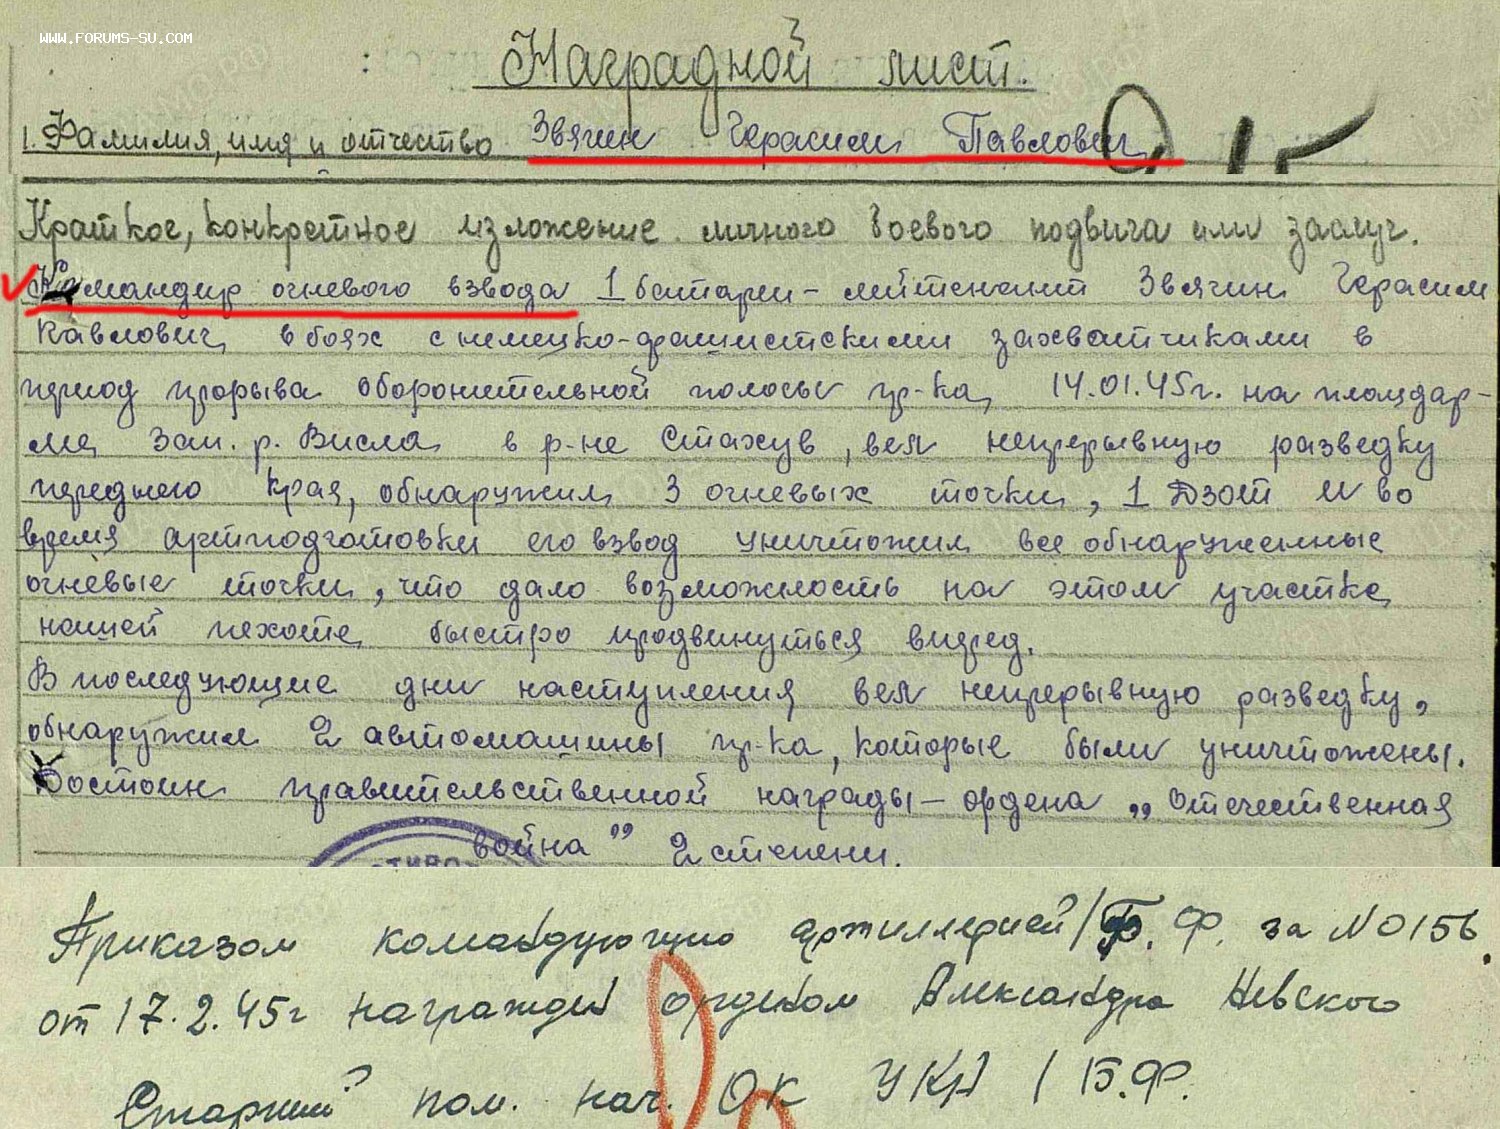 WWW.FORUMS-SU.COM
Наградной лист.
1. Фамилия, имя и отчество Звягин Герасим Павлович
Краткое, конкретное изложение личного боевого подвига или заслуг.
Командир огневого взвода 1 батареи – лейтенант Звягин Герасим
Павлович в боях с немецко-фашистскими захватчиками в
период прорыва оборонительной полосы пр-ка 14.01.45г. на плацдар-
ме зап. р. Висла в р-не Стахув, ведя непрерывную разведку
переднего края, обнаружил 3 огневых точки, 1 Дзот и во
время артподготовки его взвод уничтожил все обнаруженные
огневые точки, что дало возможность на этом участке
нашей пехоте быстро продвинуться вперед.
В последующие дни наступления ведя непрерывную разведку,
обнаружил 2 автомашины пр-ка, которые были уничтожены.
Достоин правительственной награды – ордена „Отечественная
война” 2 степени.
Приказом командующего артиллерией 1 Б.Ф. за N 0156
от 17.2.45г награжден орденом Александра Невского
Старший пом. нач. ОК УКА 1 Б.Ф.